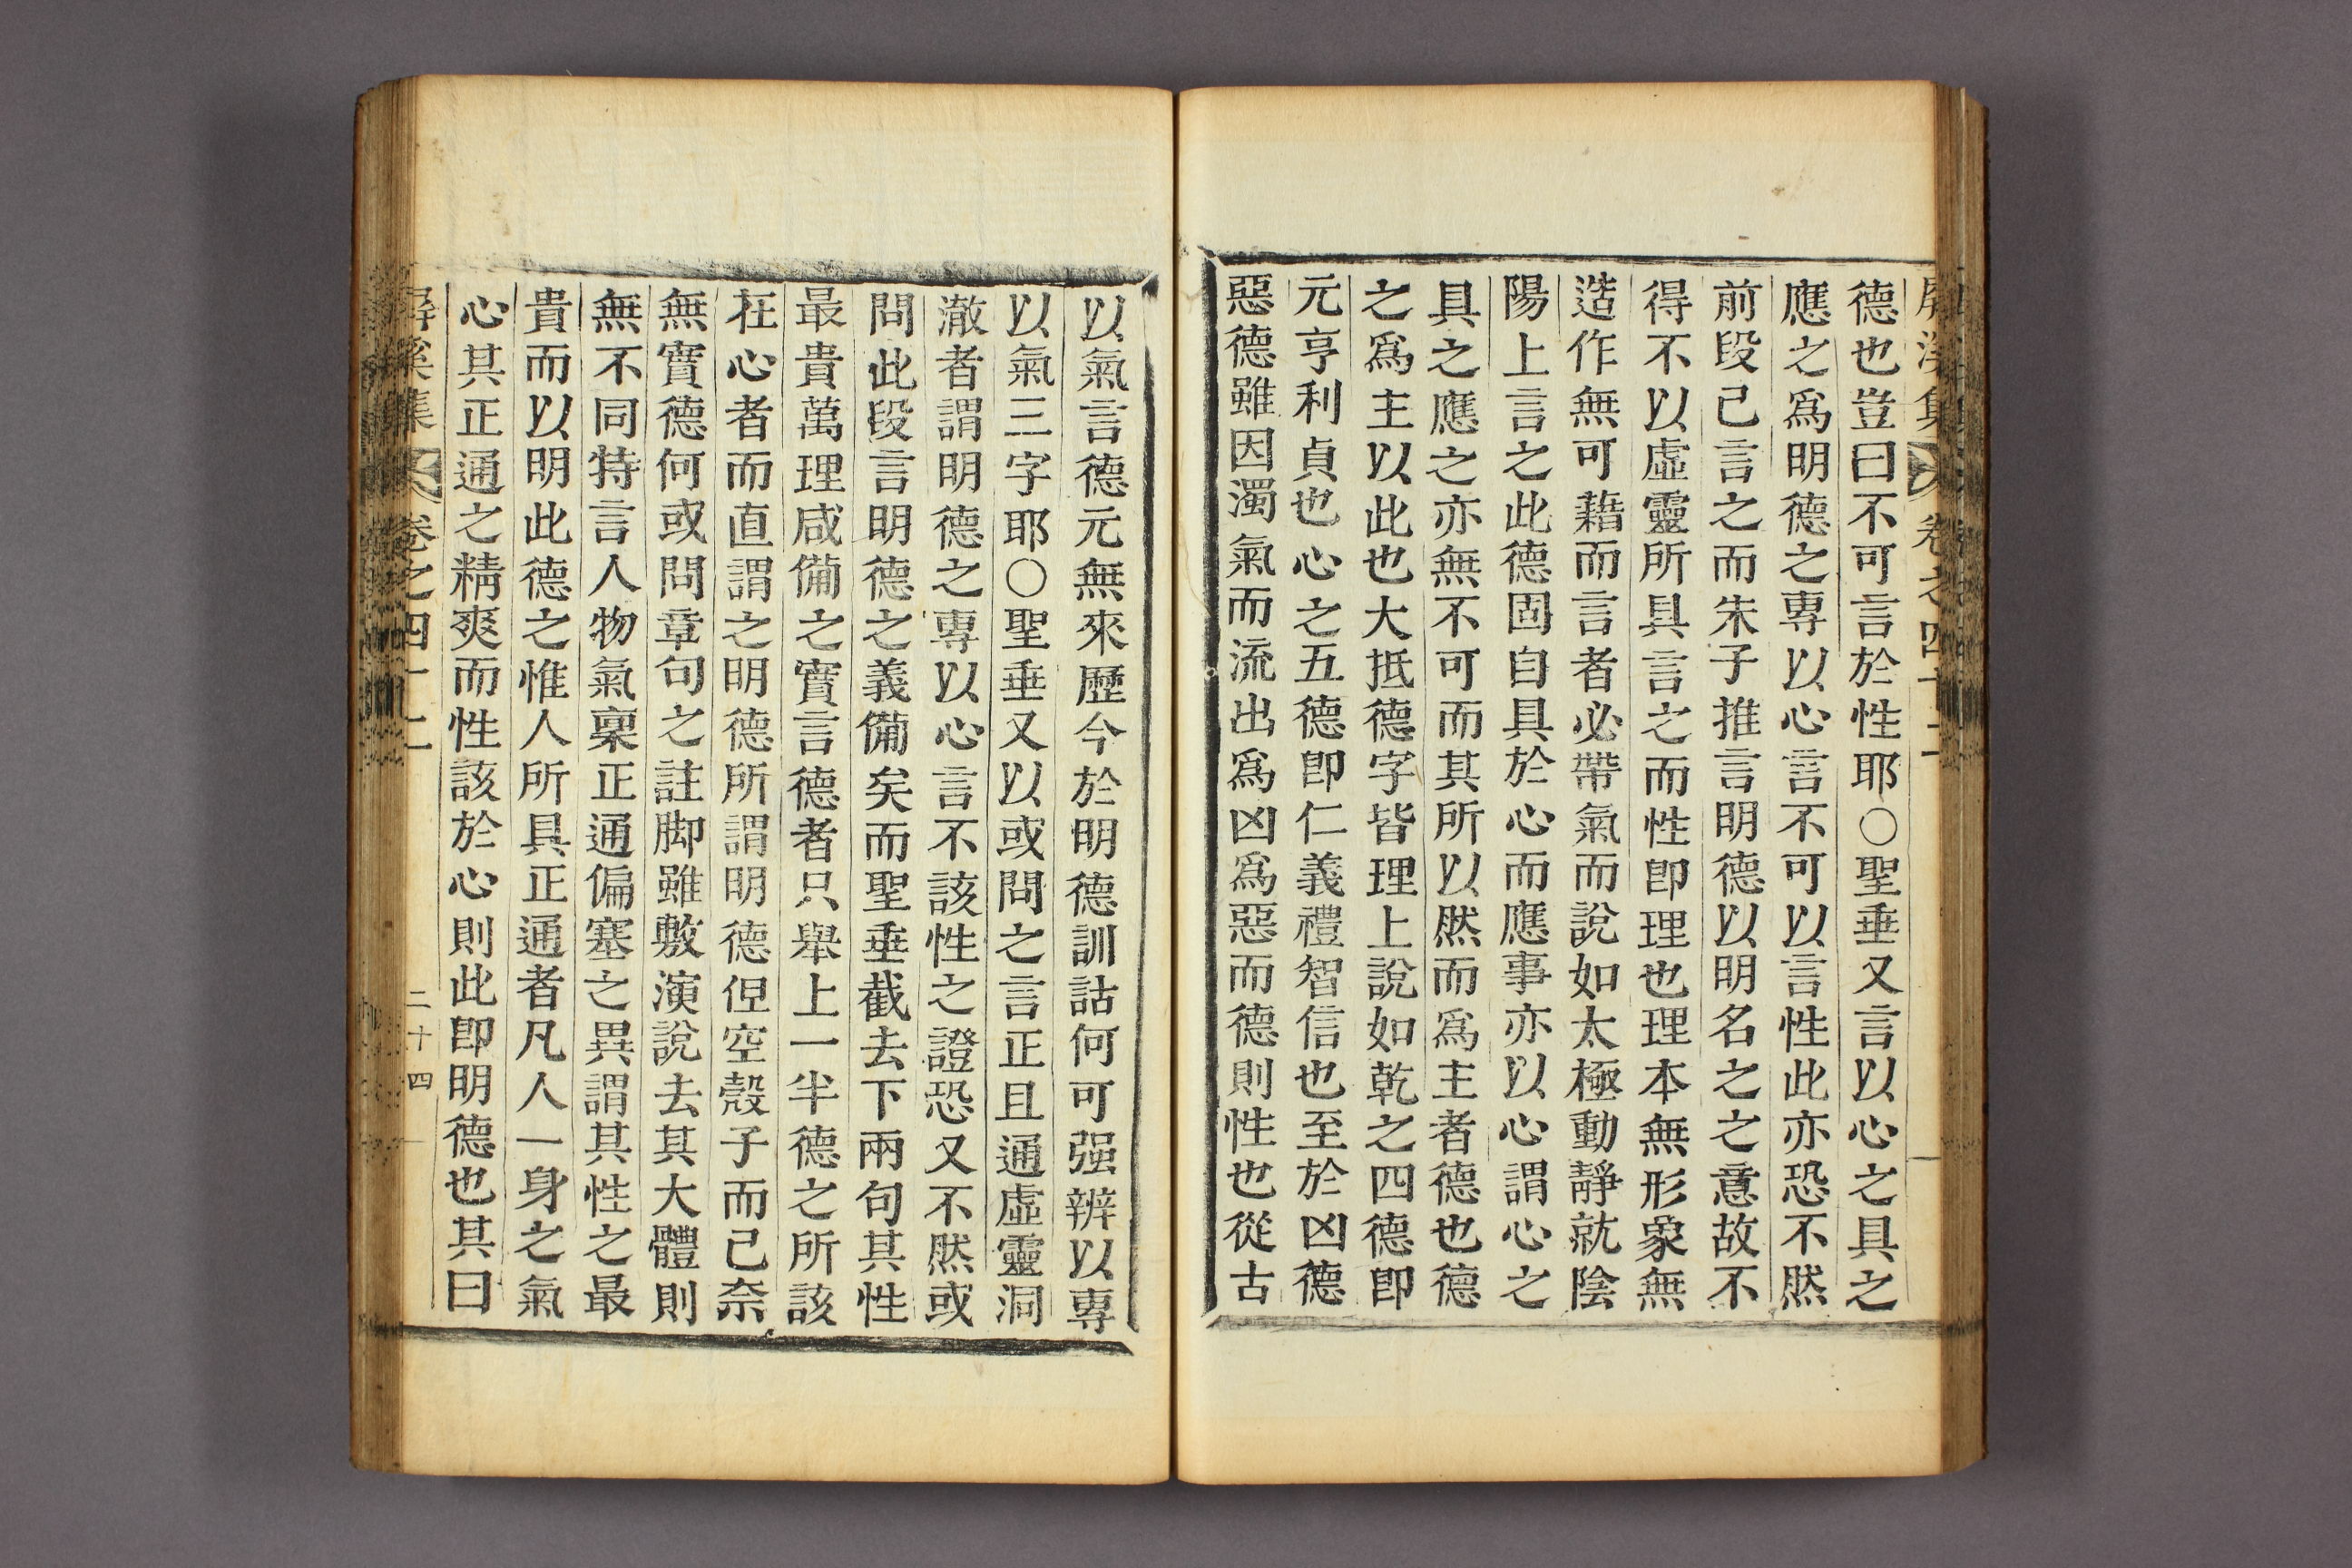 屛溪集 卷之四十二
德也豈曰不可言於性耶○聖垂又言以心之具之
應之爲明德之專以心言不可以言性此亦恐不然
前段已言之而朱子推言明德以明名之之意故不
得不以虛靈所具言之而性卽理也理本無形象無
造作無可藉而言者必帶氣而說如太極動靜就陰
陽上言之此德固自具於心而應事亦以心謂心之
具之應之亦無不可而其所以然而爲主者德也德
之爲主以此也大抵德字皆理上說如乾之四德卽
元亨利貞也心之五德卽仁義禮智信也至於凶德
惡德雖因濁氣而流出爲凶爲惡而德則性也從古
以氣言德元無來歷今於明德訓詁何可强辨以專
以氣三字耶○聖垂又以或問之言正且通虛靈洞
澈者謂明德之專以心言不該性之證恐又不然或
問此段言明德之義備矣而聖垂截去下兩句其性
最貴萬理咸備之實言德者只擧上一半德之所該
在心者而直謂之明德所謂明德但空殼子而已奈
無實德何或問章句之註脚雖敷演說去其大體則
無不同特言人物氣稟正通偏塞之異謂其性之最
貴而以明此德之惟人所具正通者凡人一身之氣
心其正通之精爽而性該於心則此卽明德也其曰
屛溪集 卷之四十二 二十四